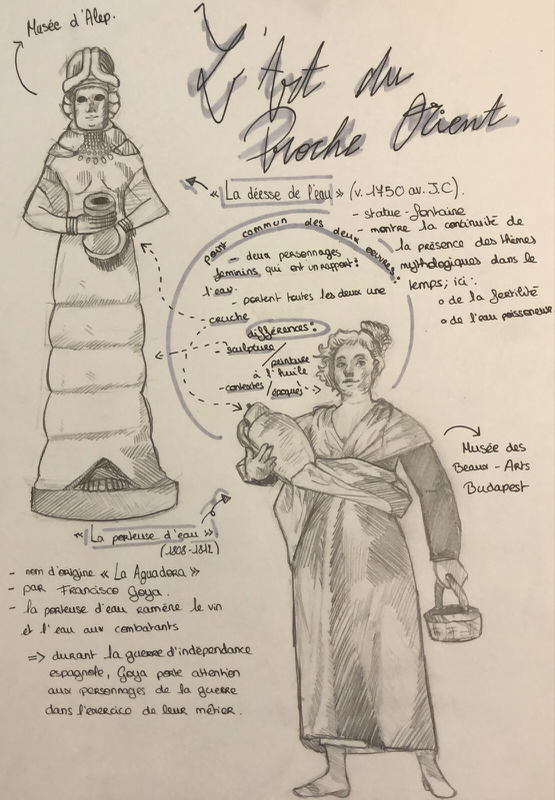 Musée d'Alep.
L'Art du
Proche Orient
« La déesse de l'eau » (v.-1750 av. J.C).
- statue-fontaine
- montre la continuité de
la présence des thèmes
mythologiques dans le
temps; ici :
o de la fertilité
o de l'eau poissoneuse
point commun des deux œuvres:
- deux personnages
féminins qui ont un rapport:
l'eau.
- portent toutes les deux une
cruche
différences:
- sculpture / peinture
à l'huile
- contextes / époques
Musée des
Beaux-Arts
Budapest
« La porteuse d'eau »
(1808-1812)
- nom d'origine « La Aguadora »
- par Francisco Goya.
- la porteuse d'eau ramène le vin
et l'eau aux combatants
=> durant la guerre d'indépendance
espagnole, Goya porte attention
aux personnages de la guerre
dans l'exercice de leur métier.